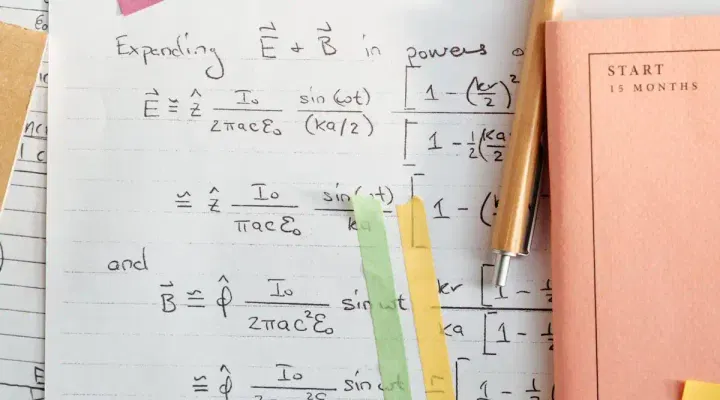 Expanding E⃗ + B⃗ in powers
E⃗ ≅ ẑ I₀/(2πacε₀) sin(ωt)/(ka/2) [1 - (kr/2)²/[1 - ½(ka
≅ ẑ I₀/(πacε₀) sin(ωt)/ka [1 - (
and
B⃗ ≅ φ̂ I₀/(2πac²ε₀) sin ωt kr/ka [1 - ½/[1 - ½
≅ φ̂ I₀ sin ωt [1 - ½
START
15 MONTHS